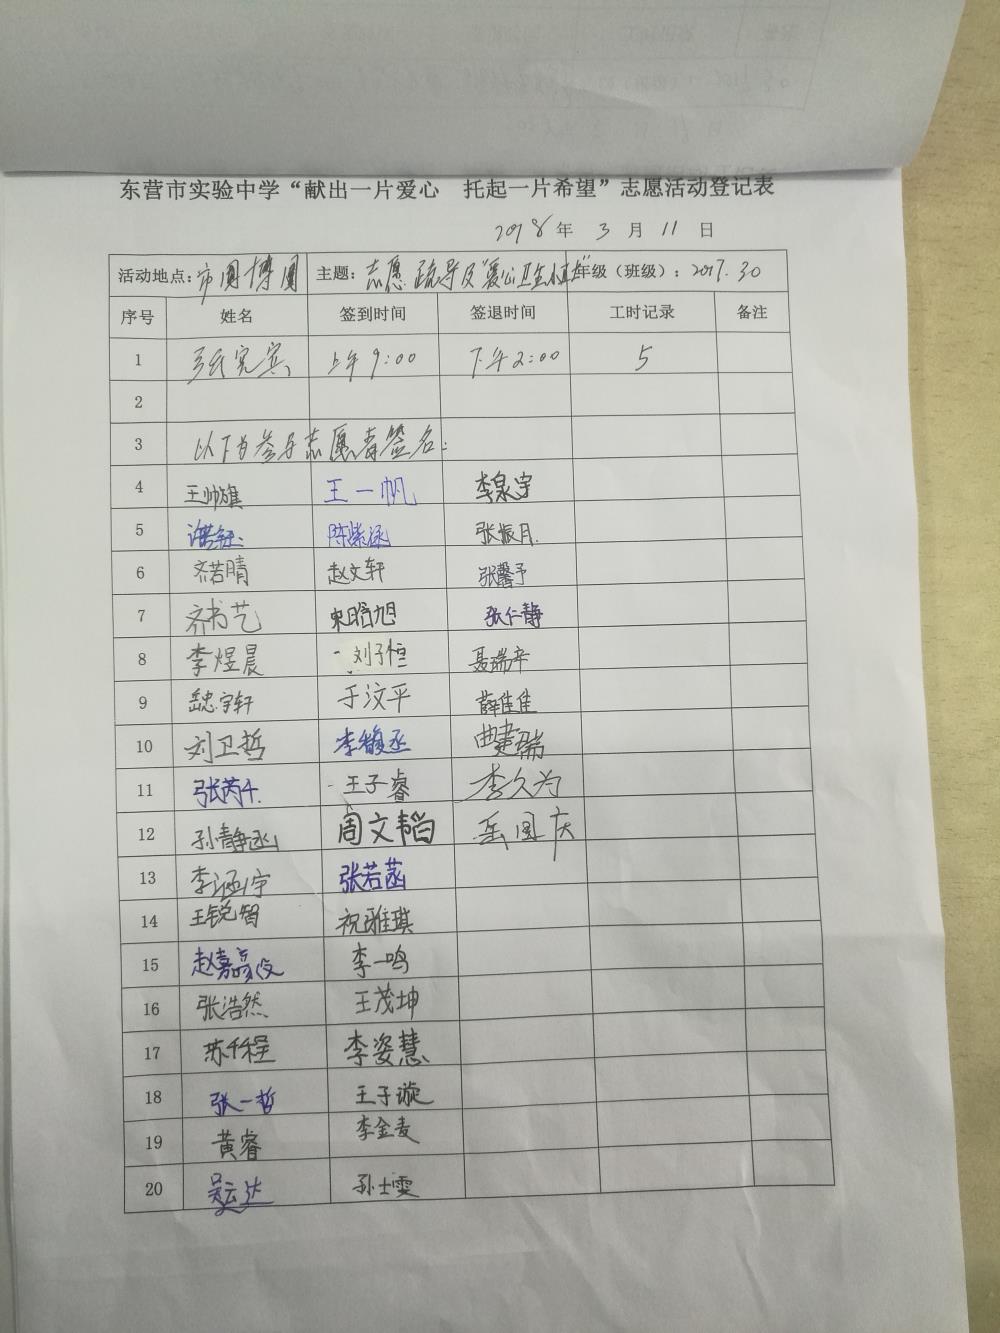 东营市实验中学“献出一片爱心 托起一片希望”志愿活动登记表
2018年 3 月 11 日
活动地点：市圆博圆 主题：志愿疏导及“爱心卫生 年级（班级）：2017.30
序号 姓名 签到时间 签退时间 工时记录 备注
1 宪宾 上午9:00 下午2:00 5
2
3 以下为参与志愿者签名：
4 王帅旗 王一帆 李泉宇
5 陈紫涵 张振月
6 齐若晴 赵文轩 张馨予
7 齐书艺 宋晗旭 张仁静
8 李煜晨 刘子恒 聂瑞辛
9 宇轩 于汶平 薛佳佳
10 刘卫哲 李馥丞 曲建瑞
11 张芮千 王子睿 李久为
12 孙静涵 周文韬 岳国庆
13 李涵宇 张若菡
14 王锐智 祝雅琪
15 赵嘉彦 李一鸣
16 张浩然 王茂坤
17 苏千程 李姿慧
18 张一哲 王子璇
19 黄睿 李金麦
20 吴云达 孙士雯